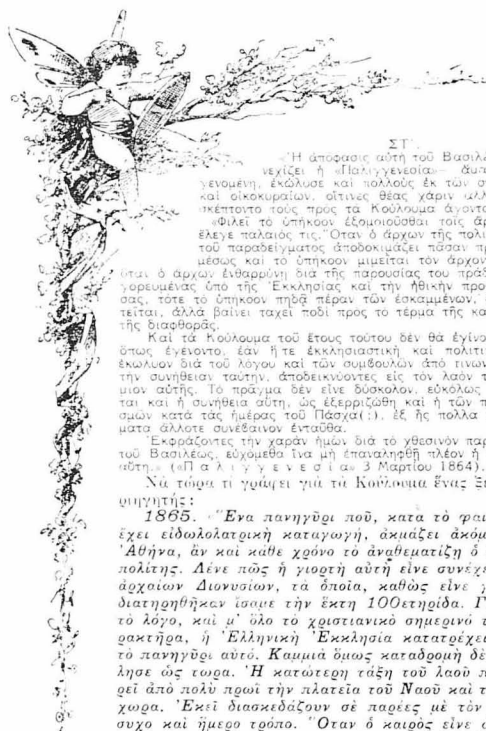 ΣΤ΄.
«Ἡ ἀπόφασις αὐτή τοῦ Βασιλέ
νεχίζει ἡ «Παλιγγενεσία»—
γενομένη, ἐκώλυσε καί πολλούς ἐκ τῶν
καί οἰκοκυραίων, οἵτινες θέας χάριν
σκέπτοντο τούς πρός τά Κούλουμα ἄγοντα
«Φιλεῖ τό ὑπήκοον ἐξομοιοῦσθαι τοῖς ἄρ
ἔλεγε παλαιός τις. Ὅταν ὁ ἄρχων τῆς πολι
τοῦ παραδείγματος ἀποδοκιμάζει πᾶσαν πρ
μέσως καί τό ὑπήκοον μιμεῖται τόν ἄρχον
ὅταν ὁ ἄρχων ἐνθαρρύνη διά τῆς παρουσίας του πράξ
γορευμένας ὑπό τῆς Ἐκκλησίας καί τήν ἠθικήν προ
σας, τότε τό ὑπήκοον πηδᾶ πέραν τῶν ἐσκαμμένων,
τεῖται, ἀλλά βαίνει ταχεῖ ποδί πρός τό τέρμα τῆς κα
τῆς διαφθορᾶς.
Καί τά Κούλουμα τοῦ ἔτους τούτου δέν θά ἐγίνο
ὅπως ἐγένοντο, ἐάν ἥ τε ἐκκλησιαστική καί πολιτι
ἐκώλυον διά τοῦ λόγου καί τῶν συμβουλῶν ἀπό τινων
τήν συνήθειαν ταύτην, ἀποδεικνύοντες εἰς τόν λαόν τ
μιον αὐτῆς. Τό πρᾶγμα δέν εἶνε δύσκολον, εὐκόλως
ται καί ἡ συνήθεια αὕτη, ὡς ἐξερριζώθη καί ἡ τῶν π
σμῶν κατά τάς ἡμέρας τοῦ Πάσχα(;), ἐξ ἧς πολλά
ματα ἄλλοτε συνέβαινον ἐνταῦθα.
Ἐκφράζοντες τήν χαράν ἡμῶν διά τό χθεσινόν παρ
τοῦ Βασιλέως, εὐχόμεθα ἵνα μή ἐπαναληφθῆ πλέον ἡ
αὕτη.» («Π α λ ι γ γ ε ν ε σ ί α» 3 Μαρτίου 1864).
Νά τώρα τί γράφει γιά τά Κούλουμα ἕνας ξέ
ριηγητής:
1865. «Ἕνα πανηγῦρι πού, κατά τό φαι
ἔχει εἰδωλολατρική καταγωγή, ἀκμάζει ἀκόμ
Ἀθήνα, ἄν καί κάθε χρόνο τό ἀναθεματίζῃ ὁ
πολίτης. Λένε πῶς ἡ γιορτή αὐτή εἶνε συνέχε
ἀρχαίων Διονυσίων, τά ὁποῖα, καθώς εἶνε γ
διατηρηθῆκαν ἴσαμε τήν ἕκτη 100ετηρίδα. Γ
το λόγο, καί μ' ὅλο τό χριστιανικό σημερινό
ρακτῆρα, ἡ Ἑλληνική Ἐκκλησία κατατρέχει
τό πανηγῦρι αὐτό. Καμμιά ὅμως καταδρομή δέ
λησε ὡς τώρα. Ἡ κατώτερη τάξη τοῦ λαοῦ π
ρεῖ ἀπό πολύ πρωί τήν πλατεῖα τοῦ Ναοῦ καί τ
χωρα. Ἐκεῖ διασκεδάζουν σέ παρέες μέ τόν
συχο καί ἥμερο τρόπο. Ὅταν ὁ καιρός εἶνε